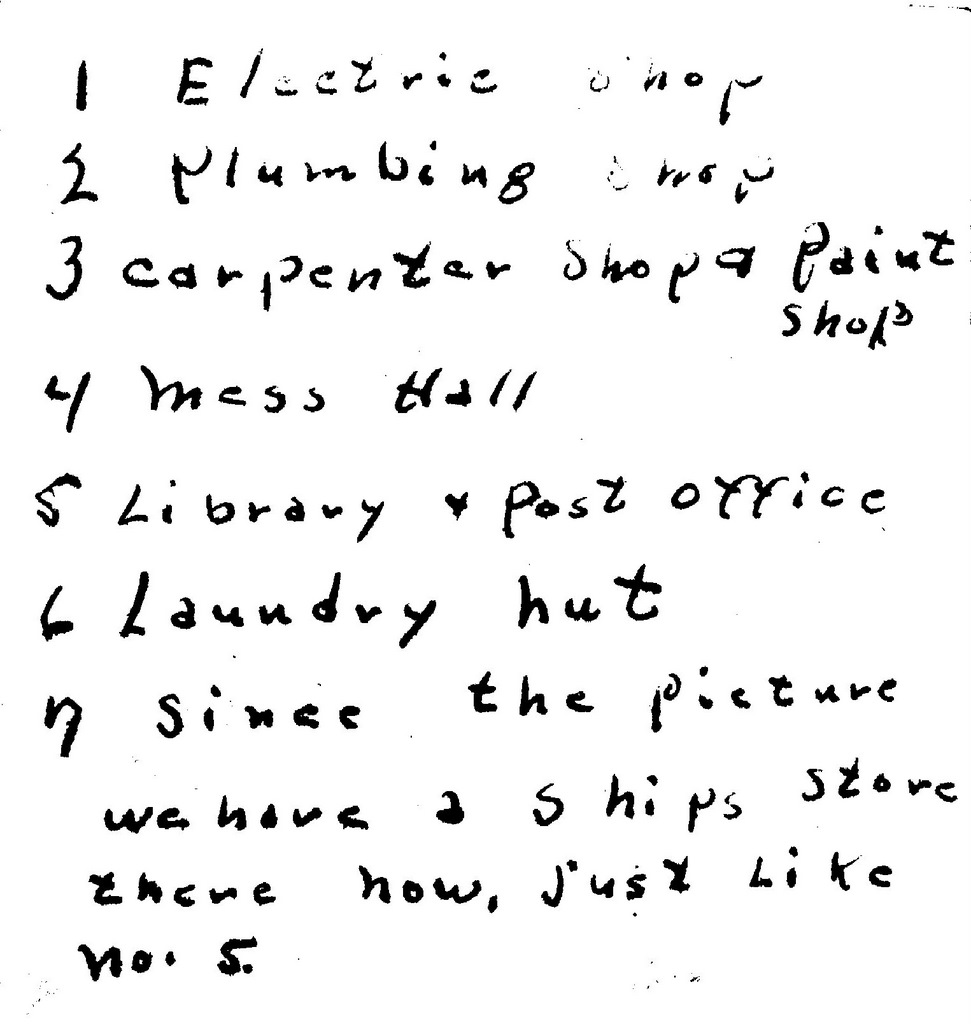 1 Electric Shop
2 Plumbing Shop
3 carpenter Shop & Paint
Shops
4 Mess Hall
5 Library & Post office
6 Laundry hut
7 Since the picture
we have a Ships store
there now, just Like
No. 5.